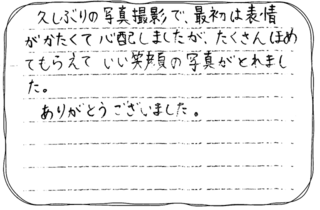 久しぶりの写真撮影で、最初は表情
がかたくて心配しましたが、たくさんほめ
てもらえていい笑顔の写真がとれまし
た。
ありがとうございました。